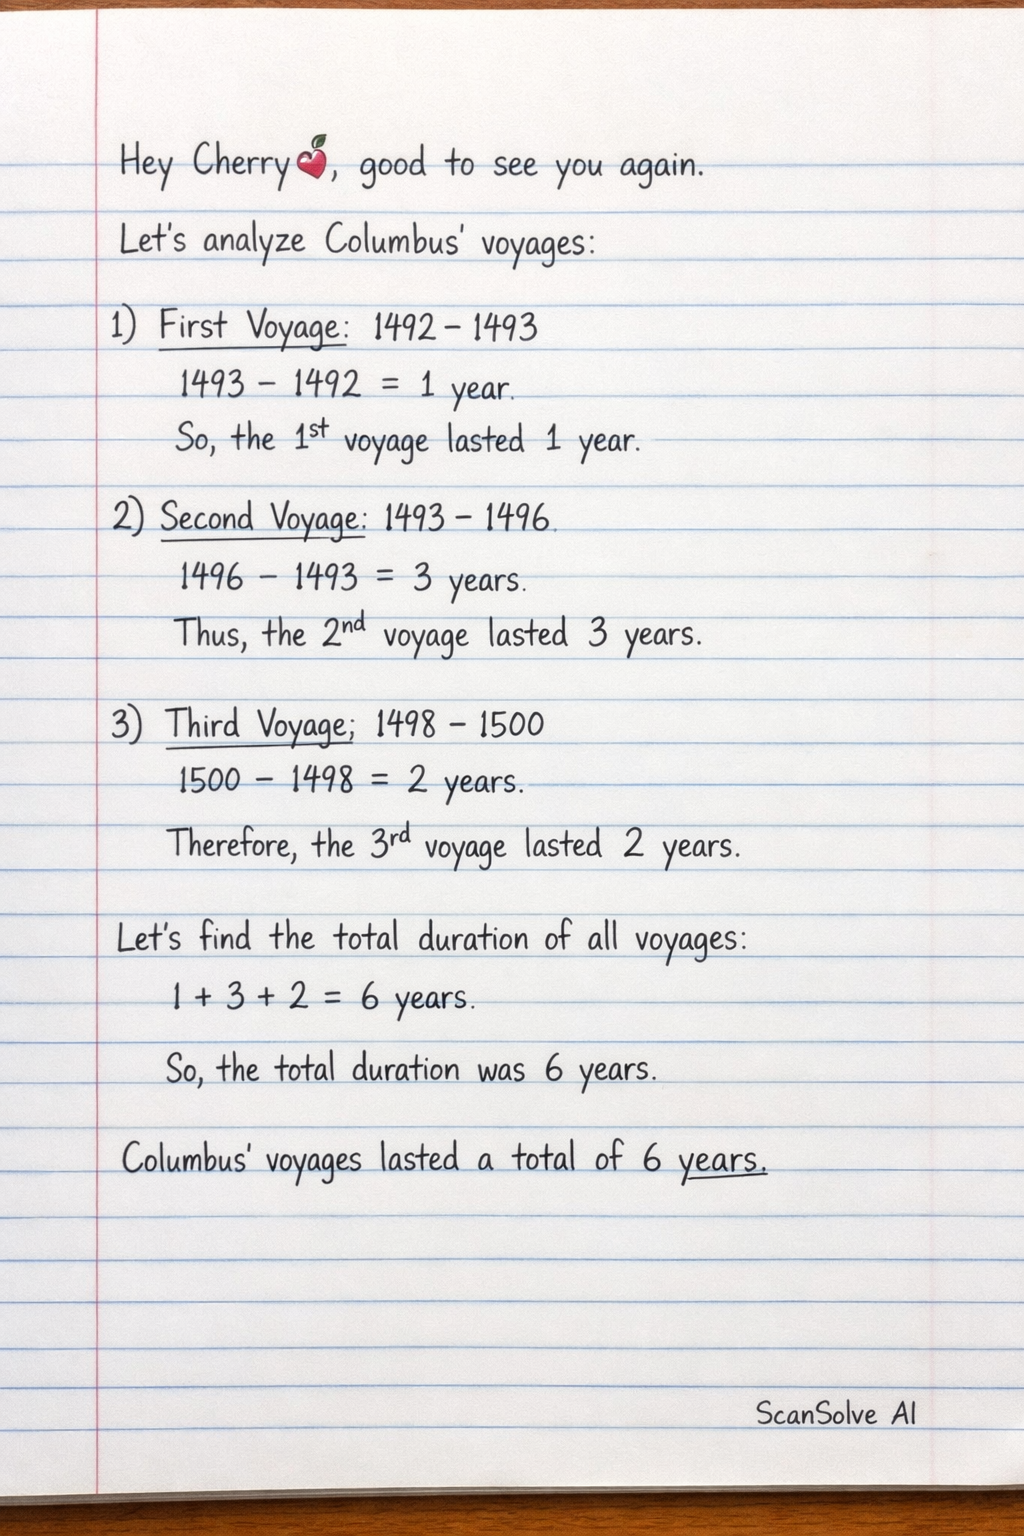 Hey Cherry🍒, good to see you again.
Let's analyze Columbus' voyages:
1) First Voyage: 1492 – 1493
1493 – 1492 = 1 year.
So, the 1st voyage lasted 1 year.
2) Second Voyage: 1493 – 1496.
1496 – 1493 = 3 years.
Thus, the 2nd voyage lasted 3 years.
3) Third Voyage; 1498 – 1500
1500 – 1498 = 2 years.
Therefore, the 3rd voyage lasted 2 years.
Let's find the total duration of all voyages:
1 + 3 + 2 = 6 years.
So, the total duration was 6 years.
Columbus' voyages lasted a total of 6 years.
ScanSolve AI